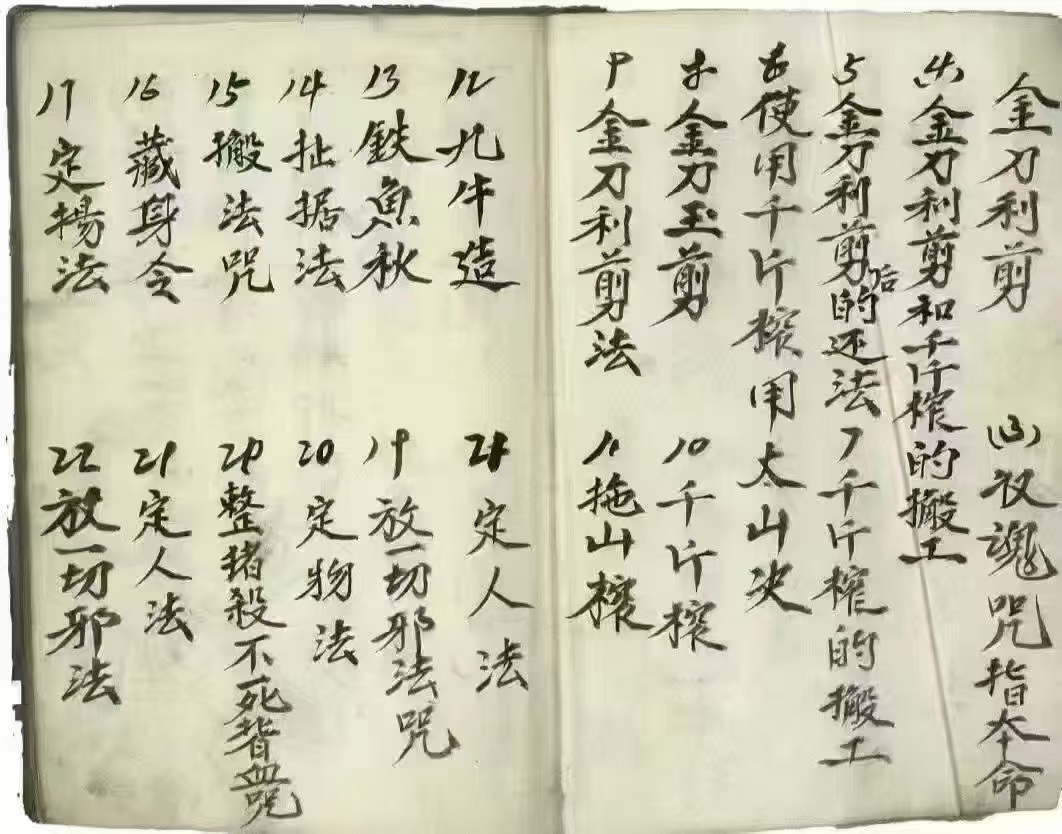 金刀利剪
(3)收魂咒指本命
(4)金刀利剪和千斤榨的搬工
5金刀利剪后的还法
7千斤榨的搬工
使用千斤榨用太山决
8金刀玉剪
10千斤榨
9金刀利剪法
11拖山榨
12九牛造
13鉄魚秋
14扯据法
15搬法咒
16藏身令
17定楊法
定人法
19放一切邪法咒
20定物法
整猪殺不死背血咒
21定人法
22放一切邪法